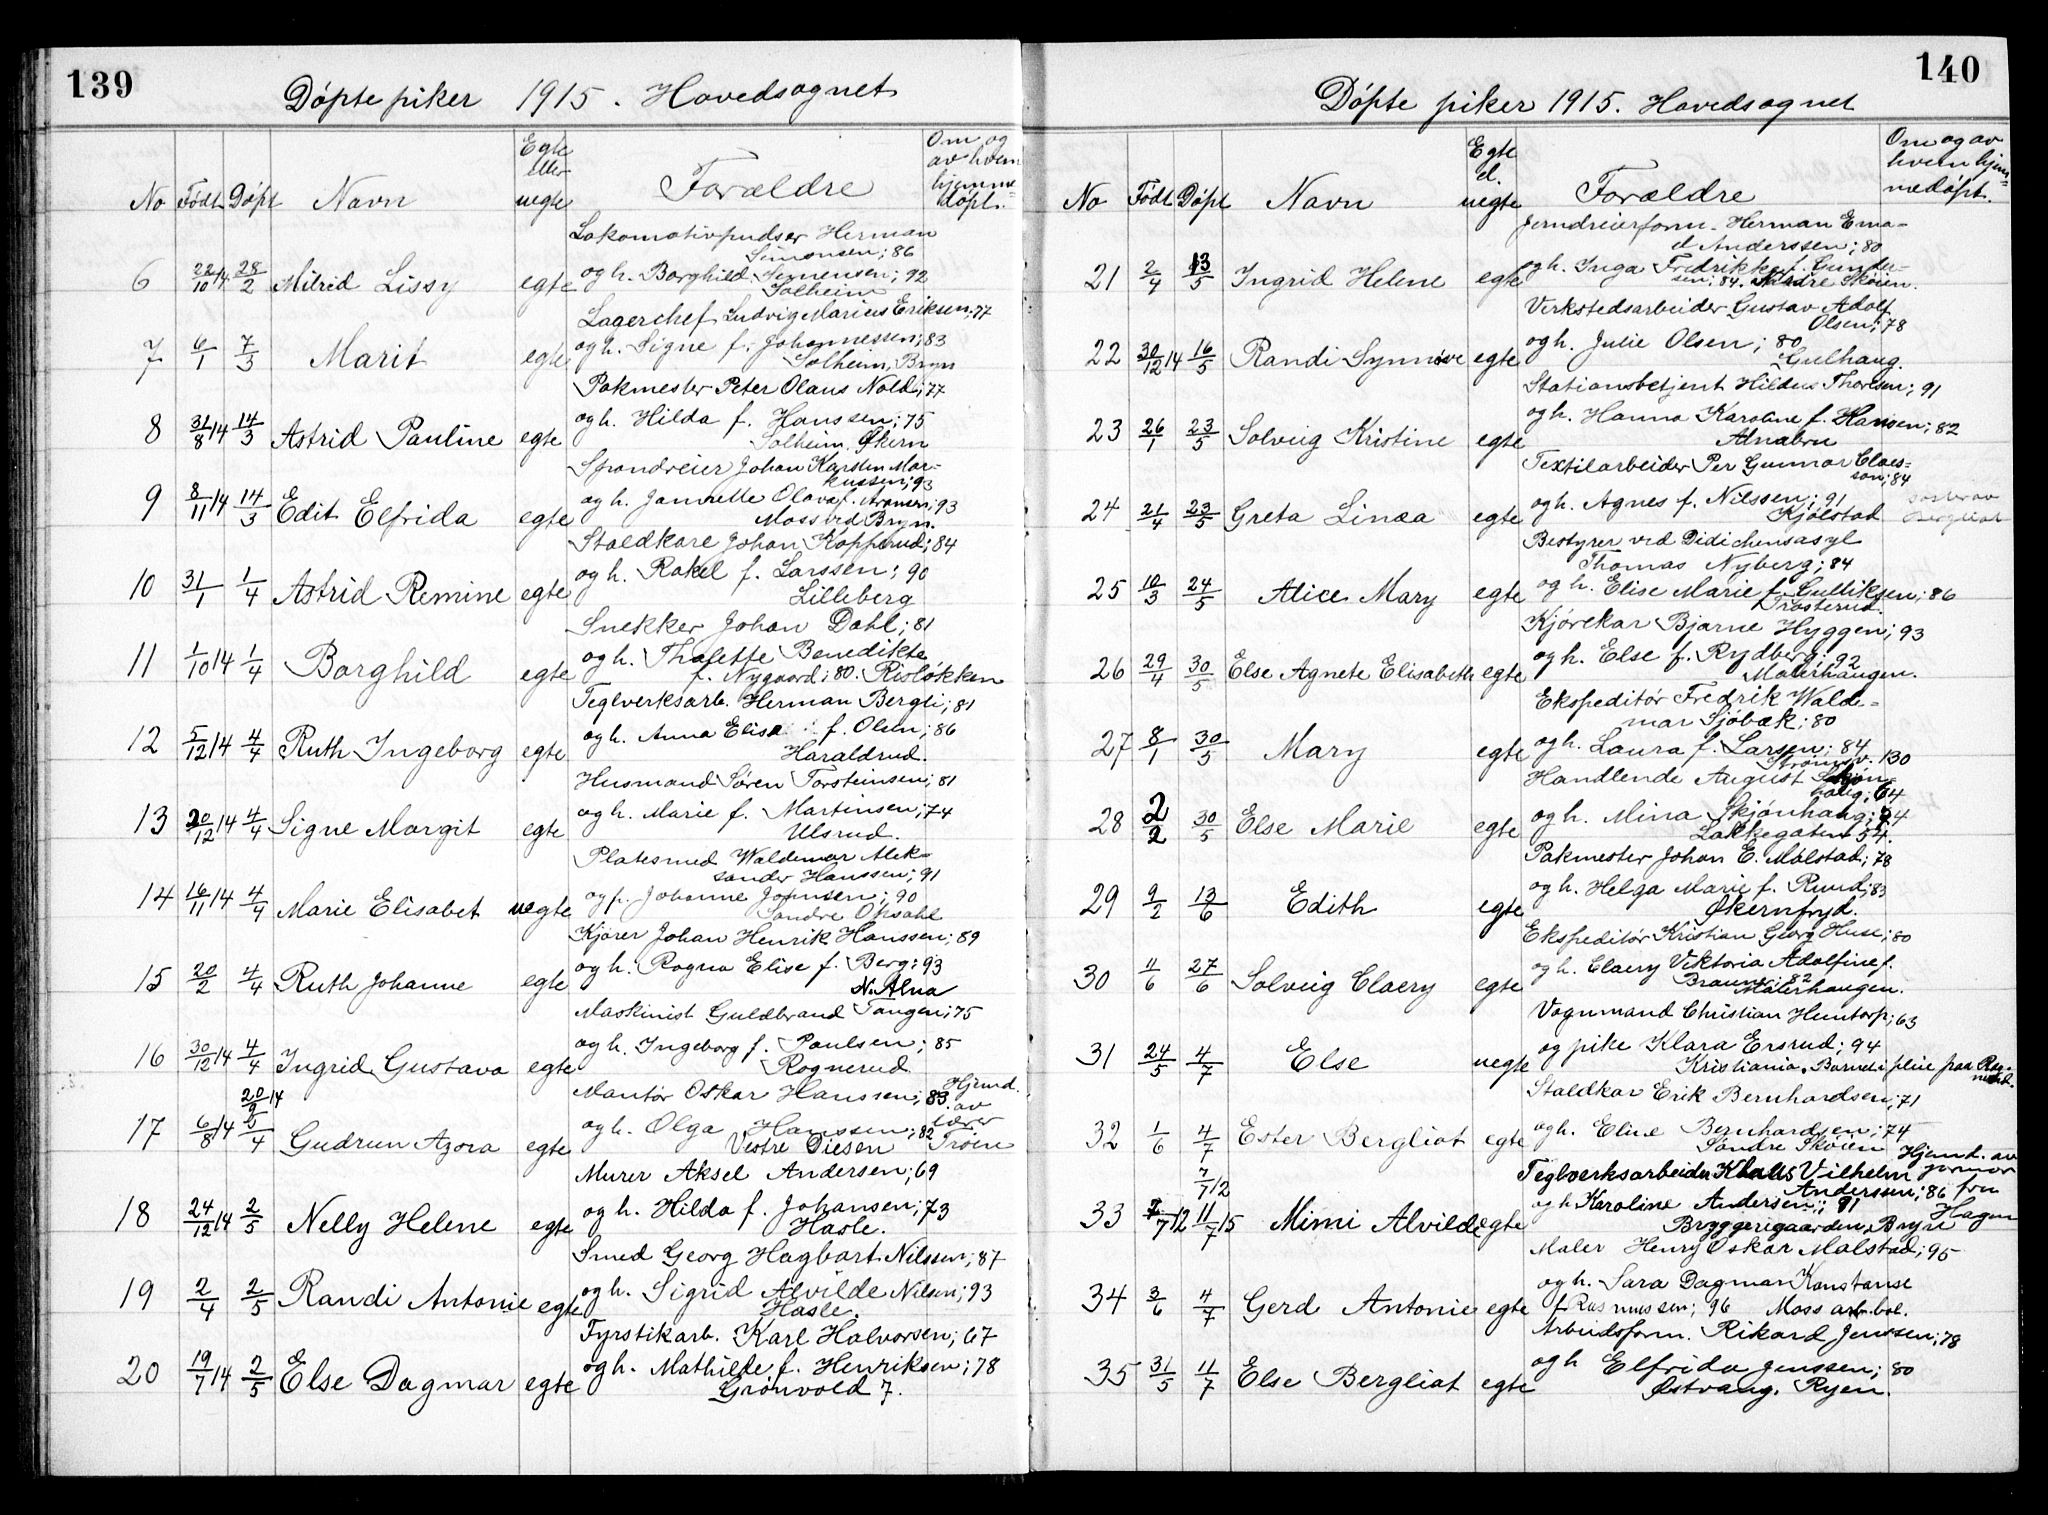 139
Døpte piker 1915. Hovedsognet
No Født Døpt Navn Egte eller uegte Forældre Om og av hvem hjemmedøpt.
Lokomotivpudser Herman
Simonsen; 86
6 22/10 14 28/2 Milrid Lissy egte og h. Borghild Simensen; 92
Solheim
Lagerchef Ludvig Marius Eriksen; 77
7 6/1 7/3 Marit egte og h. Signe f. Johannessen; 83
Solheim, Bryn
Pakmester Peter Olaus Nold; 77
8 31/8 14 14/3 Astrid Pauline egte og h. Hilda f. Hanssen; 75
Solheim. Økern
Johan Karsten Mar-
kussen; 93
9 8/11 14 14/3 Edit Elfrida egte og h. Jannette Olava f. 93
Moss ved Bryn.
Staldkare Johan Kopperud; 84
10 31/1 1/4 Astrid Remine egte og h. Rakel f. Larssen; 90
Lilleberg
Snekker Johan Dahl; 81
11 1/10 14 1/4 Borghild egte og h. Thalette Benedikte
f. Nygaard; 80. Risløkken
Teglverksarb. Herman Bergli; 81
12 5/12 14 4/4 Ruth Ingeborg egte og h. Anna Elisa f. Olsen; 86
Haraldrud.
Husmand Søren Torsteinsen; 81
13 20/12 14 4/4 Signe Margit egte og h. Marie f. Martinsen; 74
Ulsrud.
Platesmed Waldemar Alek-
sander Hanssen; 91
14 16/11 14 4/4 Marie Elisabet uegte og p. Johanne Johnsen; 90
Søndre Opsahl
Kjører Johan Henrik Hanssen; 89
15 20/2 4/4 Ruth Johanne egte og h. Ragna Elise f. Berg; 93
N. Alna
Maskinist Guldbrand Tangen; 75
16 30/12 14 4/4 Ingrid Gustava egte og h. Ingeborg f. Paulsen; 85
Rognerud
20/9 14 Montør Oskar Hanssen; 83 Hjemd.
av
17 6/8 14 5/4 Gudrun Azora egte og h. Olga Hanssen; 82 lærer
Vestre Diesen Troen
Murer Aksel Andersen; 69
18 24/12 14 2/5 Nelly Helene egte og h. Hilda f. Johansen; 73
Hasle.
Smed Georg Hagbart Nilssen; 87
19 2/4 2/5 Randi Antonie egte og h. Sigrid Alvilde Nilsen; 93
Hasle.
Fyrstikarb. Karl Halvorsen; 67
20 19/7 14 2/5 Else Dagmar egte og h. Mathilde f. Henriksen; 78
Grønvold 7.
140
Døpte piker 1915. Hovedsognet
No Født Døpt Navn Egte el. uegte Forældre Om og av hvem hjemmedøpt.
Jerndreierform. Herman Ema-
d Anderssen; 80
21 2/4 13/5 Ingrid Helene egte og h. Inga Fredrikke f. Gunder-
sen; 84. Skøien.
Verkstedsarbeider Gustav Adolf
Olsen; 78
22 30/12 14 16/5 Randi Synnøve egte og h. Julie Olsen; 80
Gulhaug.
Stationsbetjent Hildus Thorlsen; 91
23 26/1 23/5 Solveig Kristine egte og h. Hanna Karoline f. Hansen; 82
Alnabru
Textilarbeider Per Gunnar Claes-
son; 84
24 21/4 23/5 Greta Linæa egte og h. Agnes f. Nilssen; 91
Kjølstad
Bestyrer ved Didichensasyl
Thomas Nyberg; 84
25 10/3 24/5 Alice Mary egte og h. Elise Marie f. Gulliksen; 86
Trosterud.
Kjørekar Bjarne Hyggen; 93
26 29/4 30/5 Else Agnete Elisabeth egte og h. Else f. Rydberg; 92
Malerhaugen.
Ekspeditør Fredrik Walde-
mar Sjøbæk; 80
27 8/1 30/5 Mary egte og h. Laura f. Larsen; 84
Strømsv. 130
Handlende August Skjøn-
haug; 64
28 2/2 30/5 Else Marie egte og h. Mina Skjønhaug; 74
Lakkegaten 54.
Pakmester Johan E. Målstad; 78
29 9/2 13/6 Edith egte og h. Helga Marie f. Ruud; 83
Økernfryd.
Ekspeditør Kristian Georg Huse; 80
30 11/6 27/6 Solveig Claery egte og h. Claery Viktoria Adolfine f.
Braun; 82
Malerhaugen.
Vognmand Christian Huntorp; 63
31 24/5 4/7 Else uegte og pike Klara Ersrud; 94
Kristiania. Barnet i pleie paa
Staldkar Erik Bernhardsen; 71
32 1/6 4/7 Ester Bergliot egte og h. Eline Bernhardsen; 74
Søndre Skøien Hjemd. av
7/7 12 Teglverksarbeider Klaus Vilhelm jormor
Anderssen; 86 fru
33 7/7 12 11/7 15 Mimi Alvilde egte og h Karoline Andersen; 91 Hagen
Bryggerigaarden, Bryn
Maler Henry Oskar Malstad; 95
34 3/6 4/7 Gerd Antonie egte og h. Sara Dagmar Konstanse
f Rasmussen; 96 Moss arb. bol.
Arbeidsform. Rikard Jenssen; 78
35 31/5 11/7 Else Bergliot egte og h Elfrida Jenssen; 80
Østvang. Ryen.